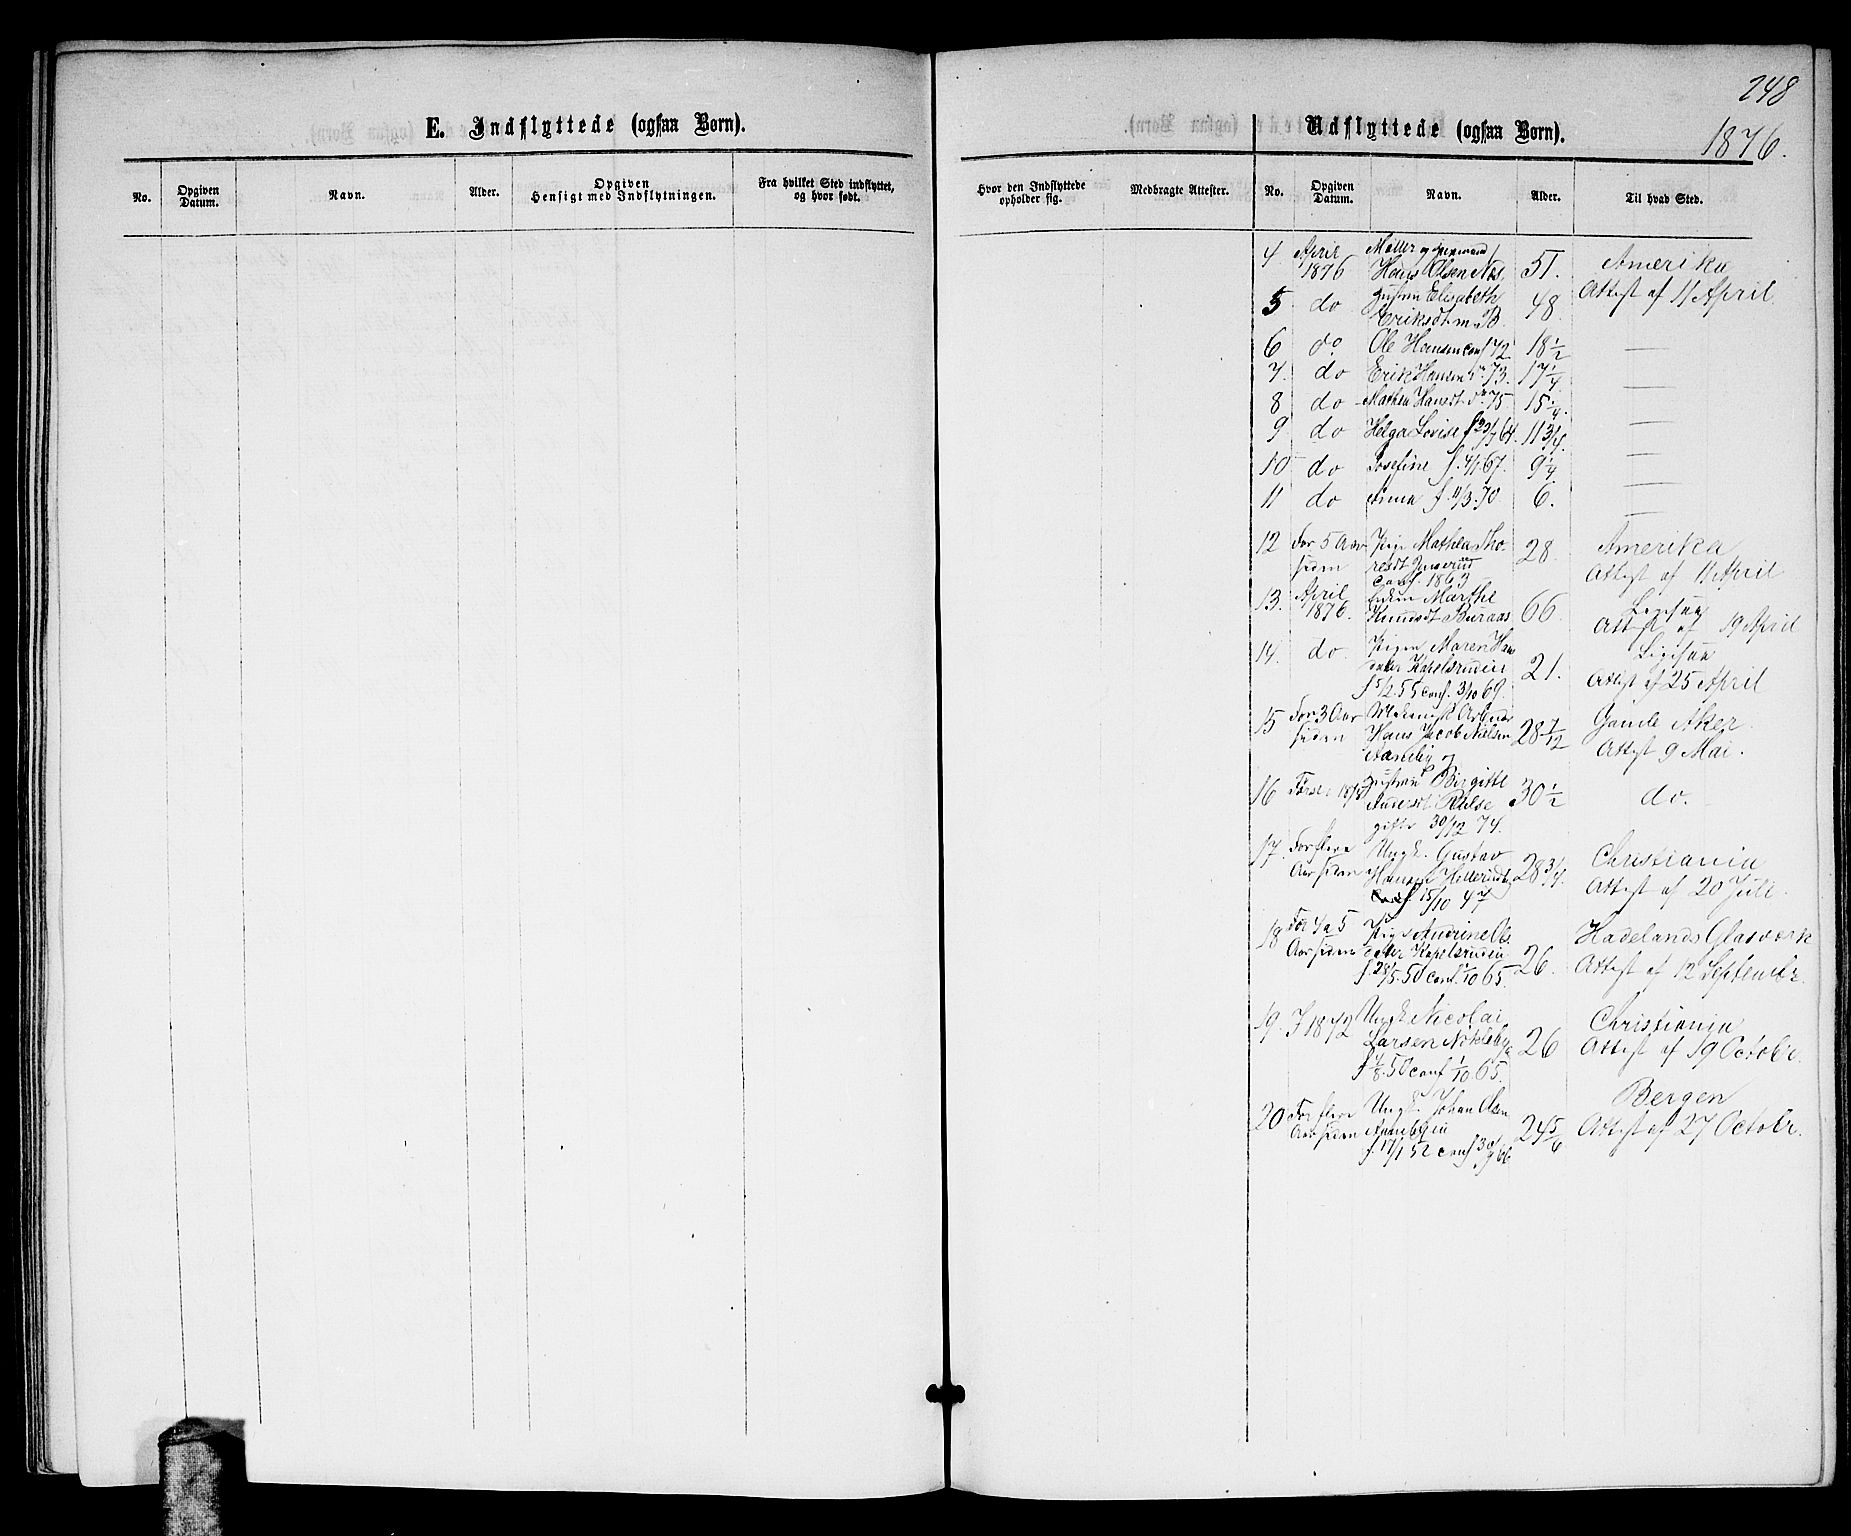 248
E. Indflyttede (ogsaa Børn).
Udflyttede (ogsaa Børn).
1876.
No.
Opgiven Datum.
Navn.
Alder.
Opgiven Hensigt med Indflytningen.
Fra hvilket Sted indflyttet, og hvor født.
Hvor den Indflyttede opholder sig.
Medbragte Attester.
No.
Opgiven Datum.
Navn.
Alder.
Til hvad Sted.
4 April Møller og
1876 Hans Olsen Næs 51. Amerika
Attest af 11 April
5 do Hustru Elisabeth
Eriksdt 48.
6 do Ole Hansen conf 72 18 1/2 —
7. do Erik Hansen do 73. 17 1/4 —
8 do Mathea Hansdt do 75 15 1/4. —
9 do Helga Lovise f 23/7 64. 11 3/4. —
10 do Josefine f. 4/1 67. 9 1/4 —
11 do Anna f. 11/3 70. 6. —
12 For 5 Aar Pige Mathea Tho- 28. Amerika
siden resdt
conf. 1863 Attest af 11 April
13. April Enken Marthe
1876. Knudsdt Buraas 66.
Attest af 19 April
14. do. Pigen Maren Hans
datter Kapelsrudeie 21.
f 5/2 55 conf. 3/10 69. Attest af 25 April
15 For 3 Aar Arbeider Gamle Aker.
siden Hans Jacob Nielsen 28 7/12 Attest 9 Mai.
og
16 Hustru Birgitte
Andersdt 30 1/2 do.
gifte 30/12 74.
17. For flere Ungk. Gustav Christiania
Aar siden Hansen 28 3/4. Attest af 20 Juli.
15/10 47
18 For 4 a 5 Pige Andrine Ols Hadelands Glasværk
Aar siden datter Kapelsrudeie 26. Attest af 12 Septembr.
f. 28/5. 50 conf. 1/10 65.
19. I 1872 Ungk Nicolai Christiania
Larsen 26 Attest af 19 Octobr.
f 7/8. 50 conf 1/10 65.
Bergen
20 For flere Ungk. Johan Olsen
Aar siden 24 5/6 Attest af 27 Octobr.
f. 17/1 52 conf 30/9 66